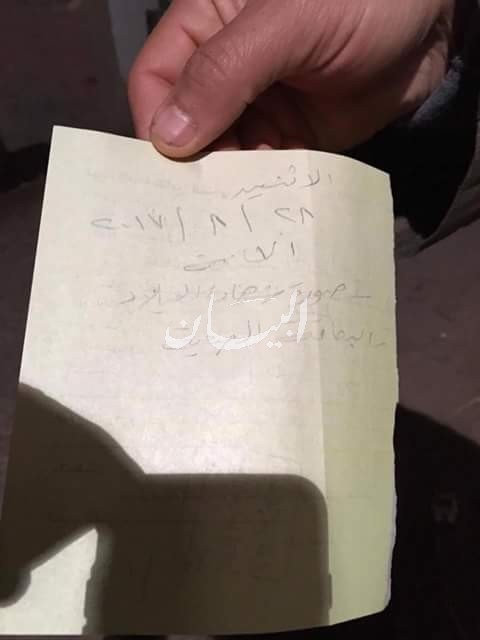 الاثنين
٢٨ / ٨ / ٢٠١٧
الثامنة
- صورة شهادة الميلاد
والبطاقة العائلية
البيان